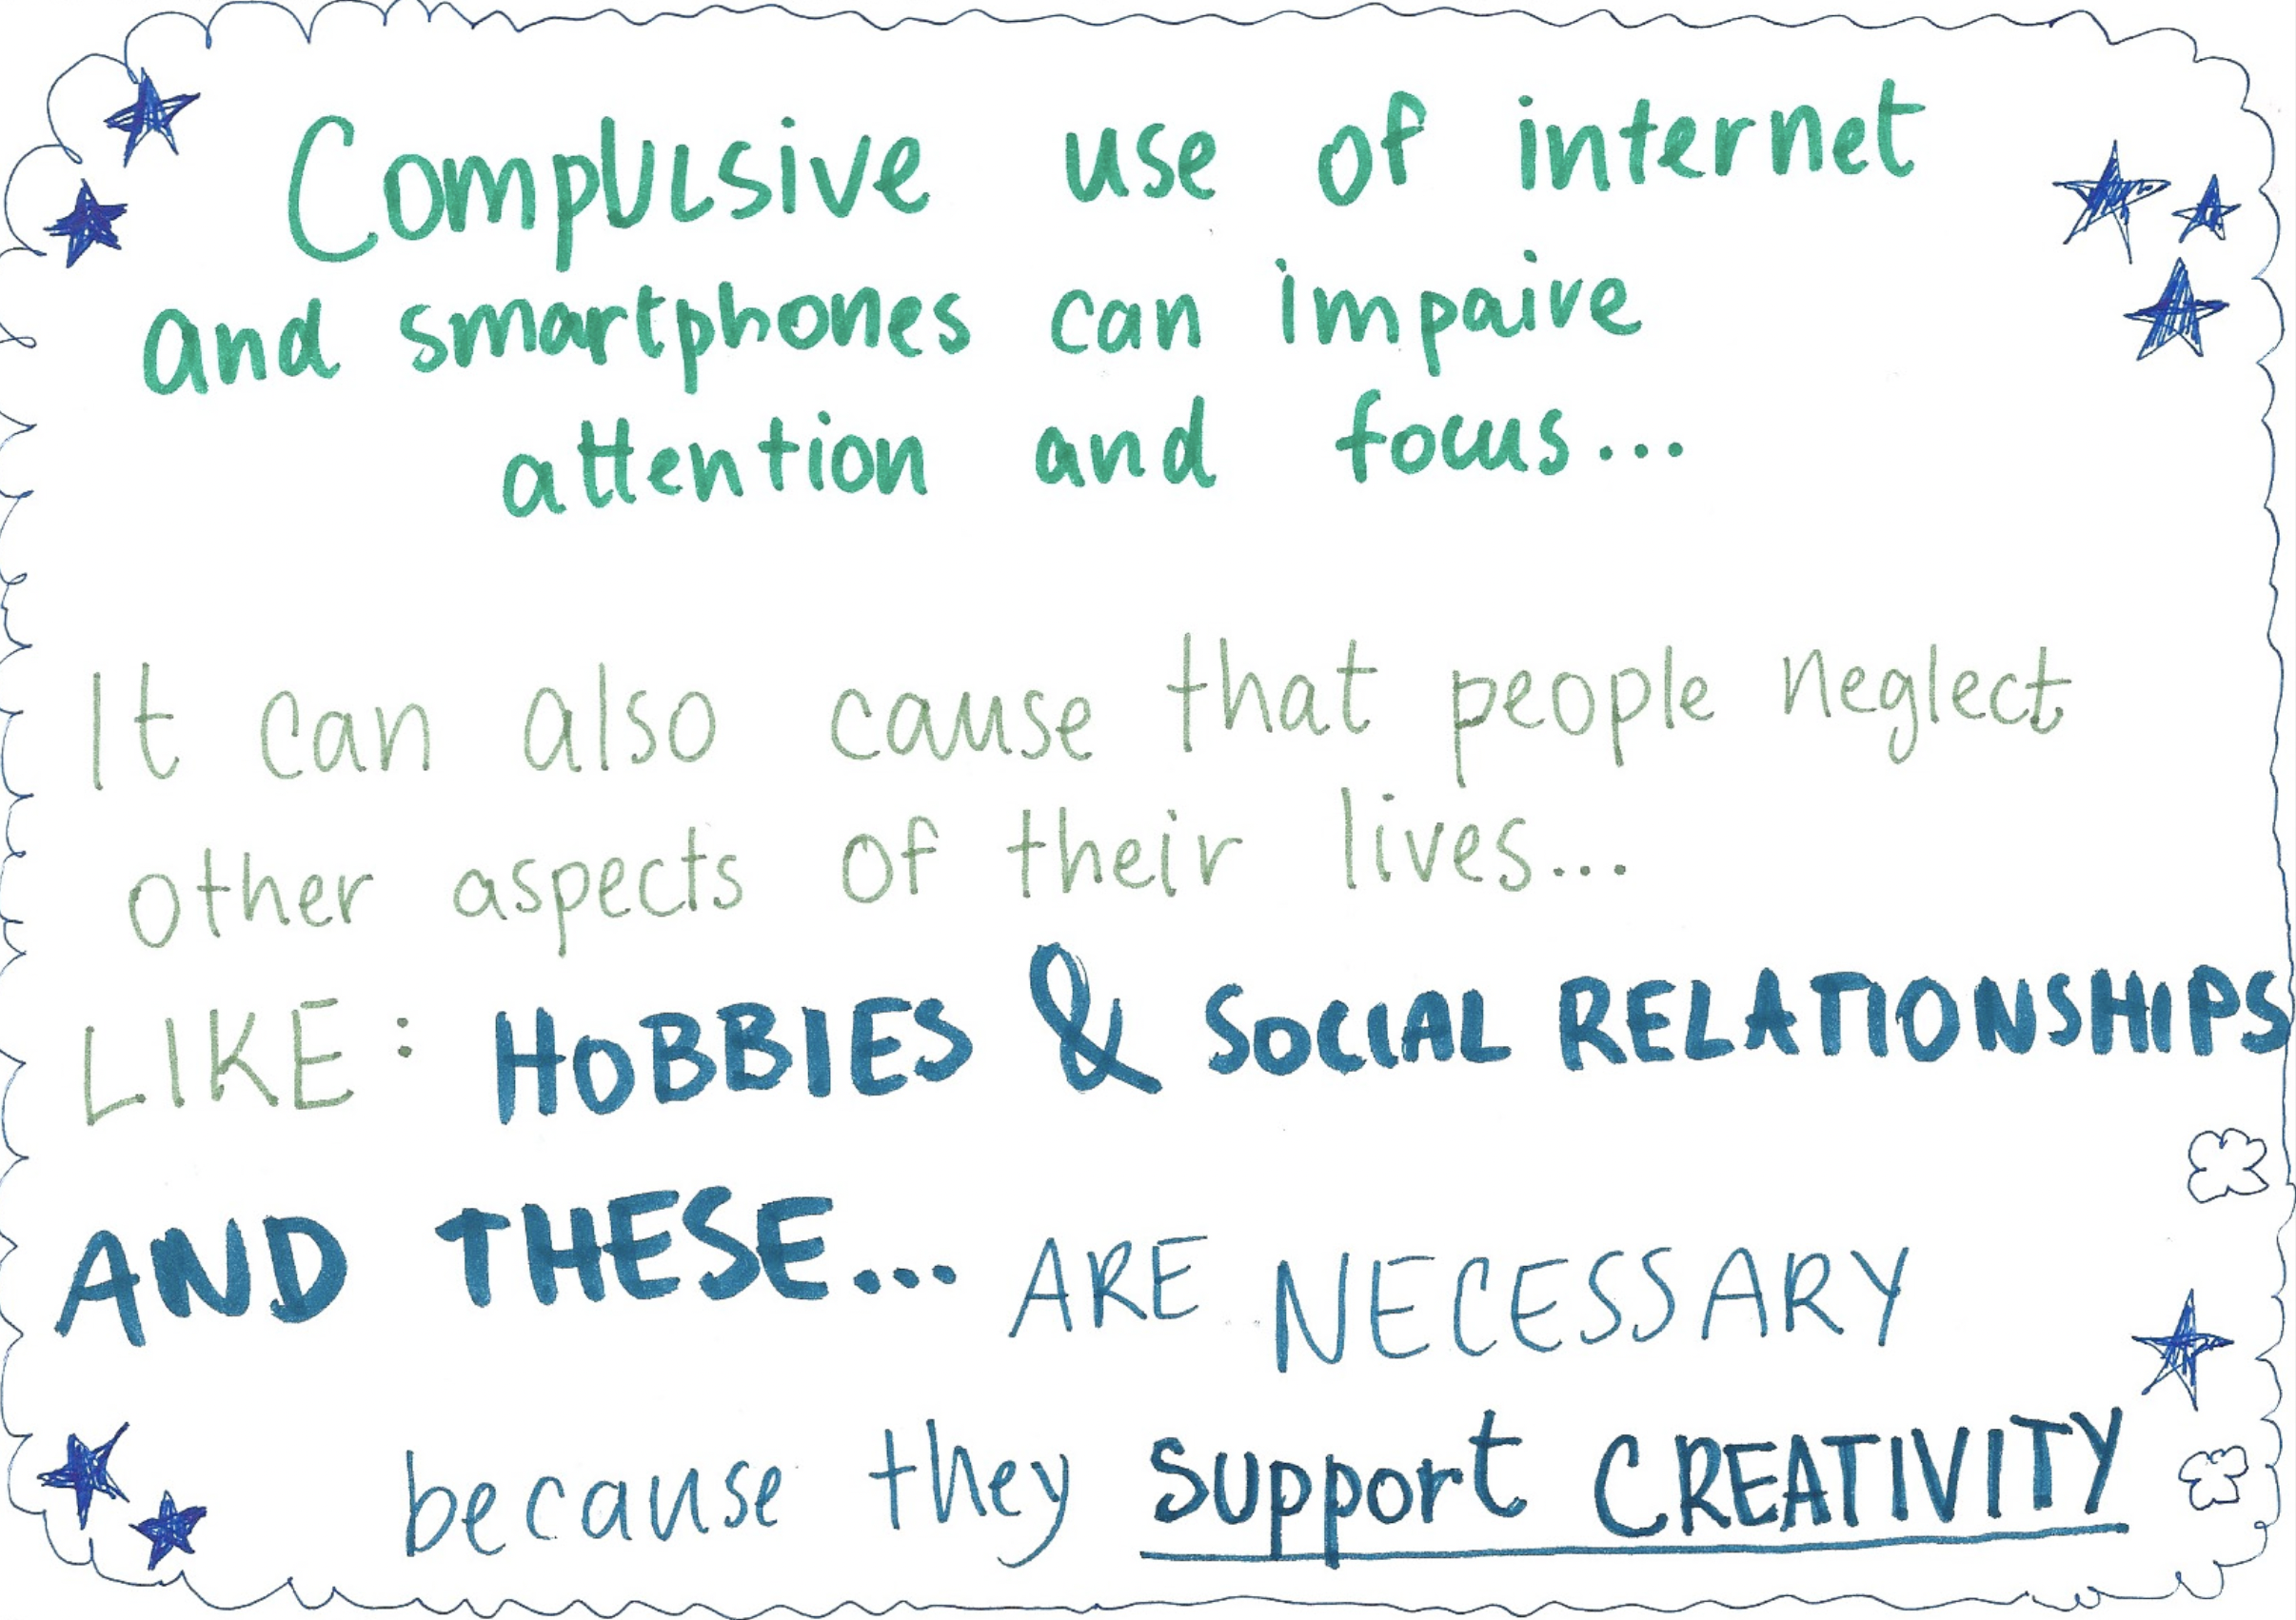 Compulsive use of internet
and smartphones can impaire
attention and focus...
It can also cause that people neglect
other aspects of their lives...
LIKE: HOBBIES & SOCIAL RELATIONSHIPS
AND THESE... ARE NECESSARY
because they support CREATIVITY